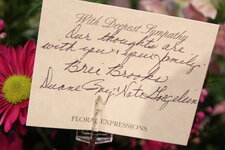 With Deepest Sympathy
Our thoughts are
with you & your family.
Brii Brooks
Duane Spy & Nate Goegelein
FLORAL EXPRESSIONS